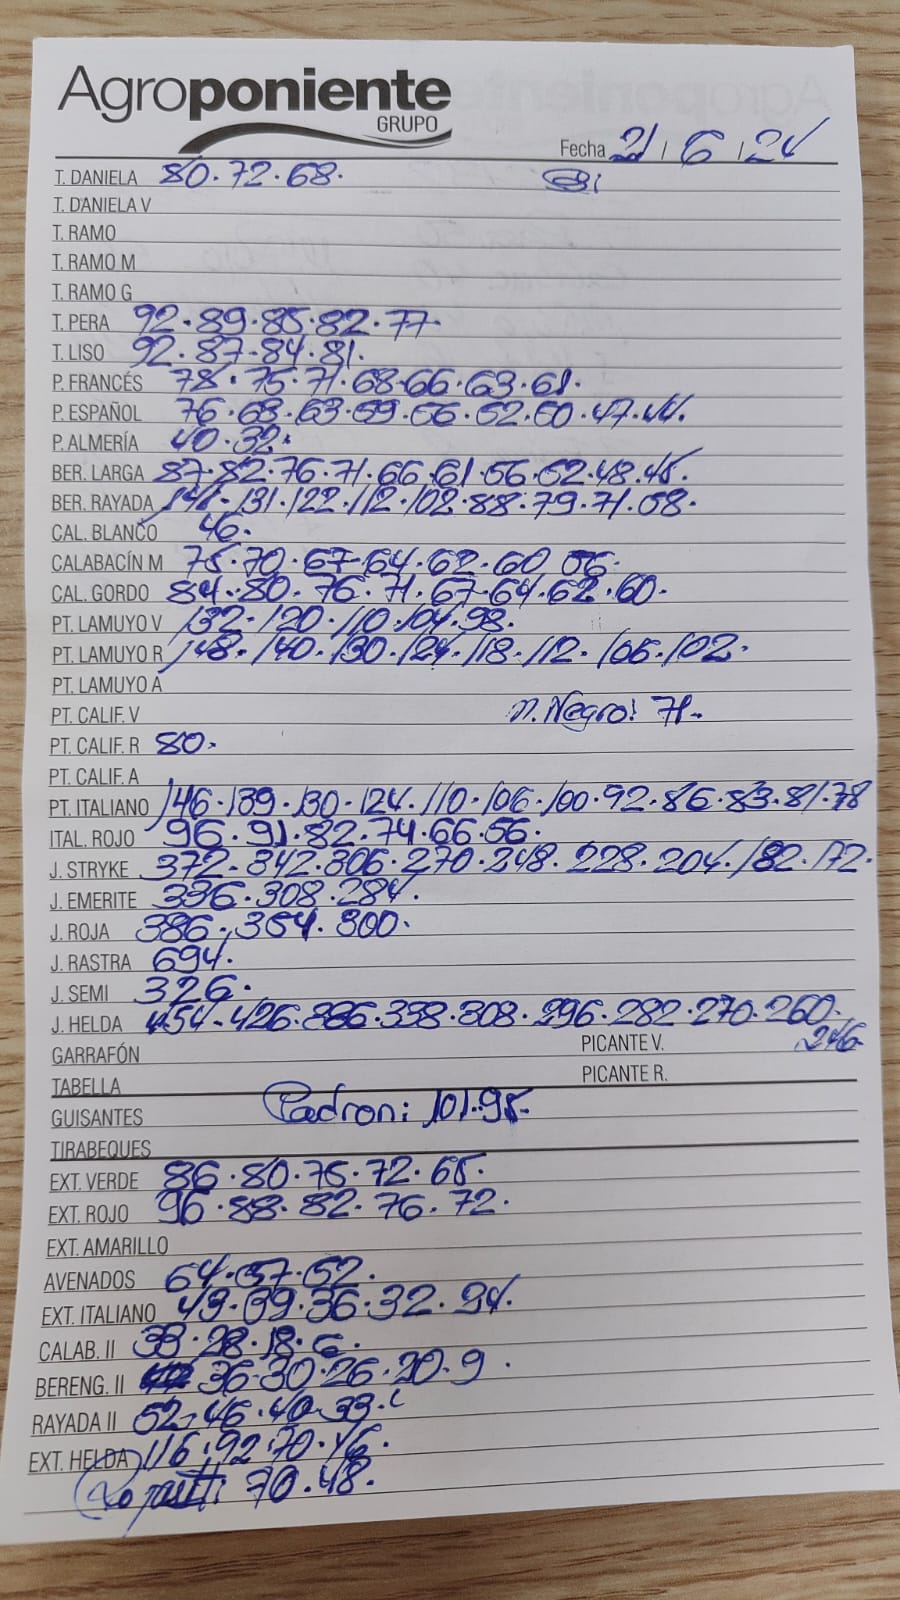 Agroponiente
GRUPO
Fecha 21 / 6 / 24
T. DANIELA 80.72.68.
T. DANIELA V
T. RAMO
T. RAMO M
T. RAMO G
T. PERA 92.89.85.82.77.
T. LISO 92.87.84.81.
P. FRANCÉS 78.75.71.68.66.63.61.
P. ESPAÑOL 76.68.63.59.56.52.50.47.44.
P. ALMERÍA 40.32.
BER. LARGA 87.82.76.71.66.61.56.52.48.45.
BER. RAYADA 146.131.122.112.102.88.79.71.58.
CAL. BLANCO 46.
CALABACÍN M 75.70.67.64.62.60 56.
CAL. GORDO 84.80.76.71.67.64.62.60.
PT. LAMUYO V 132.120.110.104.98.
PT. LAMUYO R 148.140.130.124.118.112.106.102.
PT. LAMUYO A
PT. CALIF. V P. Negro: 71.
PT. CALIF. R 80.
PT. CALIF. A
PT. ITALIANO 146.139.130.124.110.106.100.92.86.83.81.78
ITAL. ROJO 96.91.82.74.66.56.
J. STRYKE 372.342.306.270.248.228.204.182.172.
J. EMERITE 336.308.284.
J. ROJA 386.354.300.
J. RASTRA 694.
J. SEMI 326.
J. HELDA 454.426.386.338.308.296.282.270.260.
246.
GARRAFÓN PICANTE V.
TABELLA PICANTE R.
GUISANTES Padron: 101.95.
TIRABEQUES
EXT. VERDE 86.80.75.72.65.
EXT. ROJO 96.88.82.76.72.
EXT. AMARILLO
AVENADOS 64.57.52.
EXT. ITALIANO 43.39.36.32.24.
CALAB. II 33.28.18.6.
BERENG. II 36.30.26.20.9.
RAYADA II 52.46.40.33.
EXT. HELDA 116.92.70.46.
70.48.